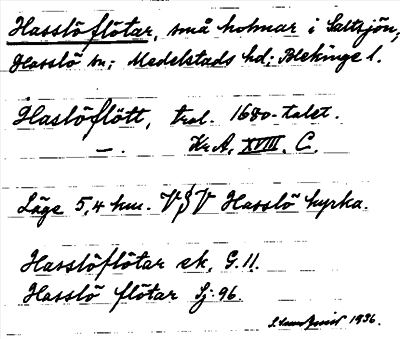 Hasslöflötar, små holmar i Saltsjön,
Hasslö sn; Medelstads hd; Blekinge l.
Haslöflött, trol. 1680-talet.
— . Kr. A. XVIII. C.
Läge 5,4 km. V§V Hasslö kyrka.
Hasslöflötar ek. G. 11.
Hasslö flötar Sj. 96.
1936.